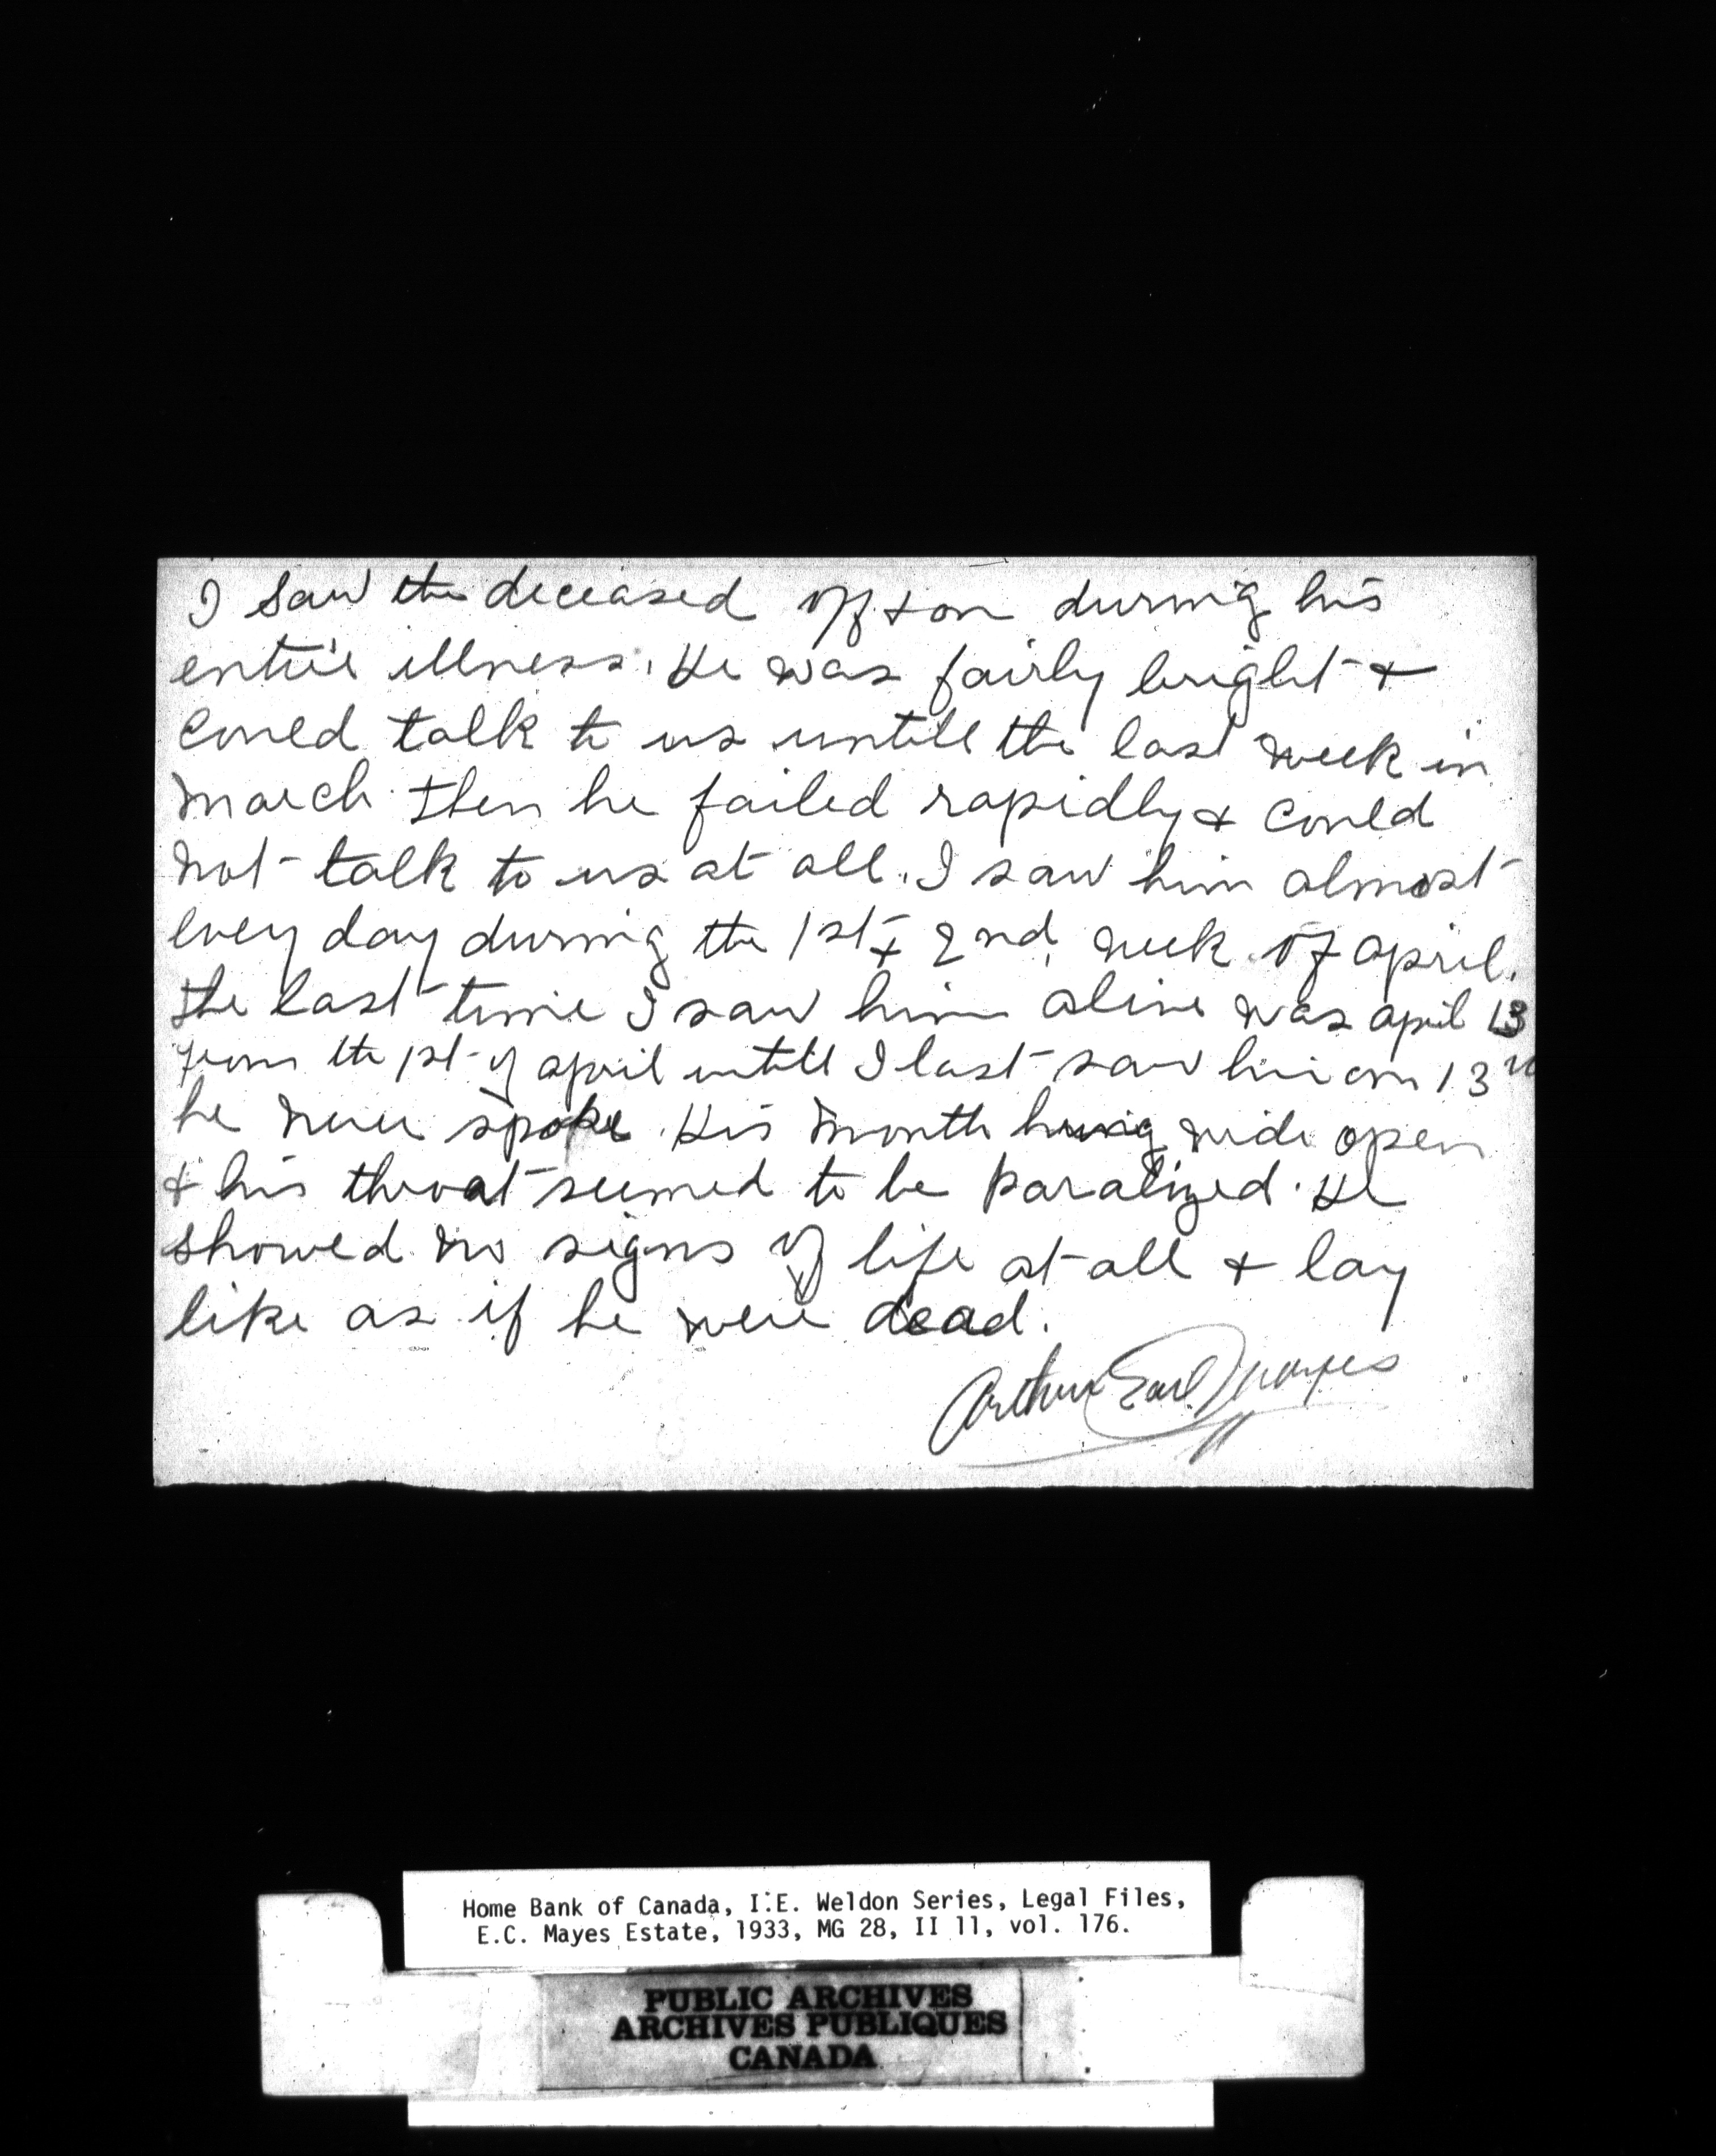 I saw the deceased off + on during his
entire illness. He was fairly bright +
could talk to us untill the last week in
March then he failed rapidly + could
not talk to us at all. I saw him almost
every day during the 1st + 2nd week of april.
the last time I saw him alive was april 13
from the 1st of april untill I last saw him on 13
he never spoke. His mouth hung wide open
+ his throat seemed to be paralized. He
showed no signs of life at all + lay
like as if he were dead.
Arthur Earl Mayes
Home Bank of Canada, I.E. Weldon Series, Legal Files,
E.C. Mayes Estate, 1933, MG 28, II 11, vol. 176.
PUBLIC ARCHIVES
ARCHIVES PUBLIQUES
CANADA